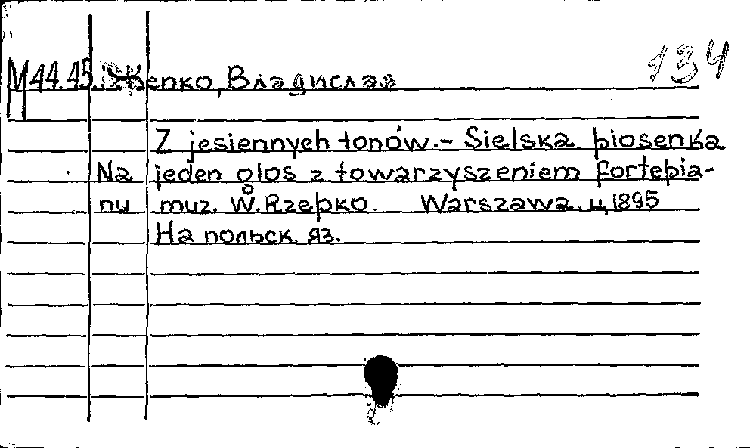 134
M 44.45. Жепко, Владислав
Z jesiennych tonów. - Sielska piosenka
Na jeden głos z towarzyszeniem fortepia-
nu muz. W. Rzepko. Warszawa. ц, 1895
На польск. яз.